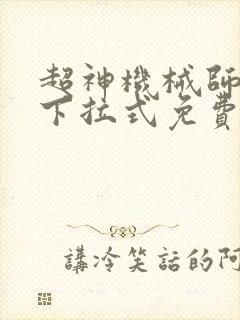 超神機械師
下拉式免費
講冷笑話的阿